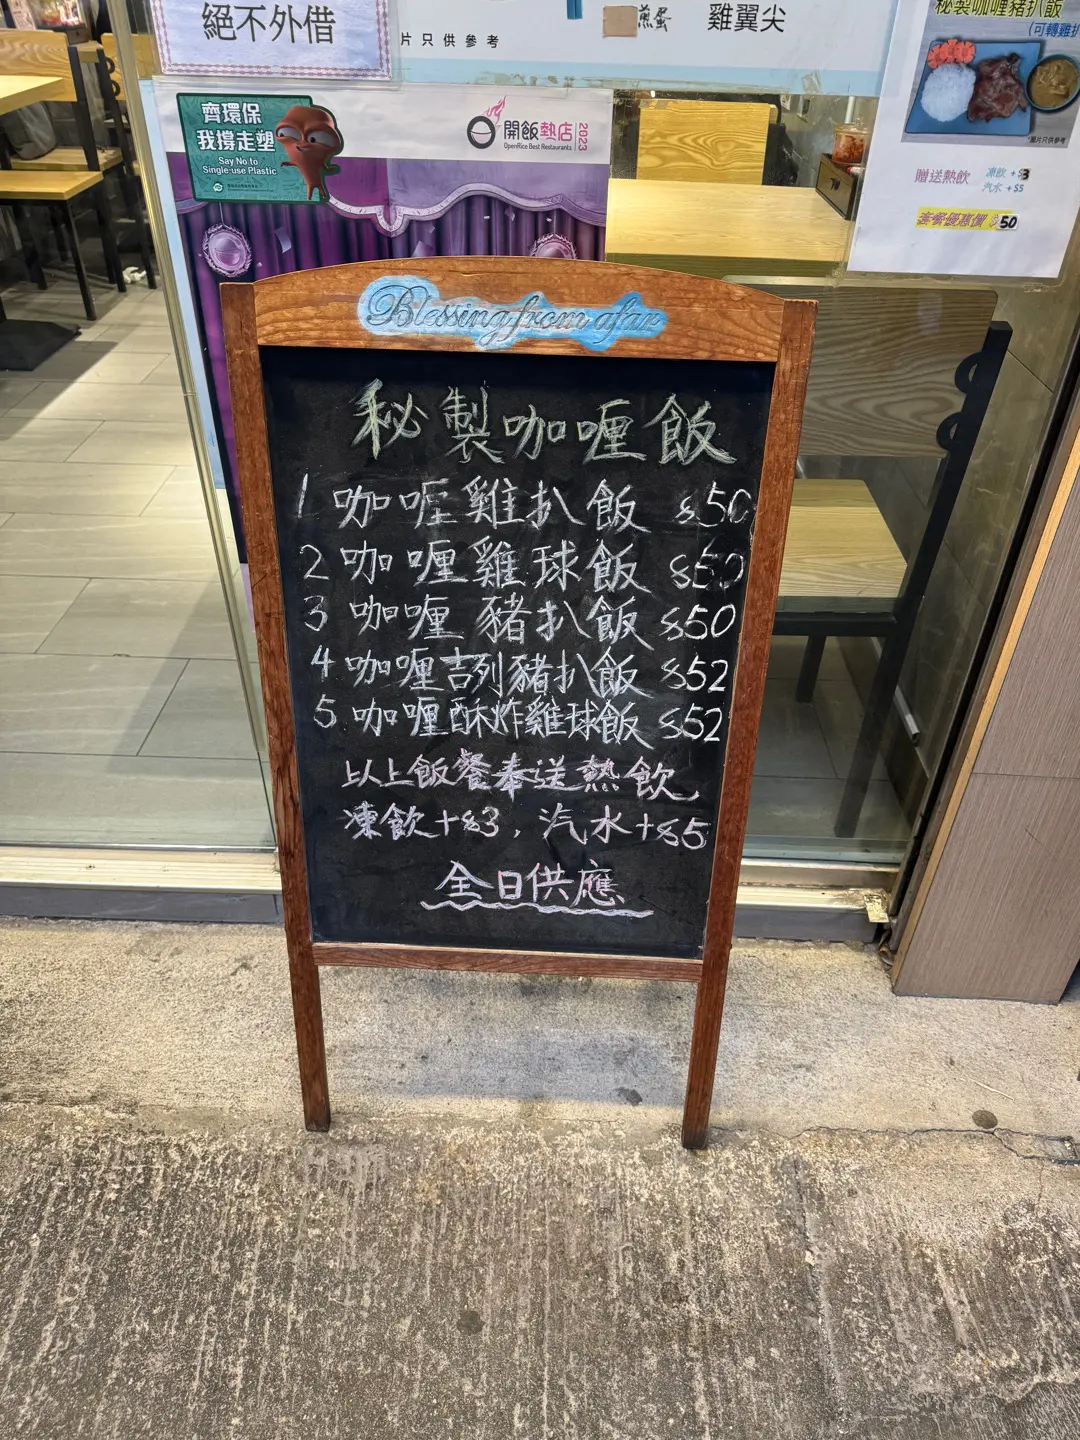 絕不外借
片只供參考
煎蛋
雞翼尖
秘製咖喱豬扒飯
(可轉雞扒
*圖片只供參考
贈送熱飲
凍飲 +$3
汽水 +$5
套餐優惠價 $50
齊環保
我撐走塑
Say No to
Single-use Plastic
開飯熱店 2023
OpenRice Best Restaurants
Blessing from afar
秘製咖喱飯
1 咖喱雞扒飯 $50
2 咖喱雞球飯 $50
3 咖喱豬扒飯 $50
4 咖喱吉列豬扒飯 $52
5 咖喱酥炸雞球飯 $52
以上飯餐奉送熱飲
凍飲+$3，汽水+$5
全日供應